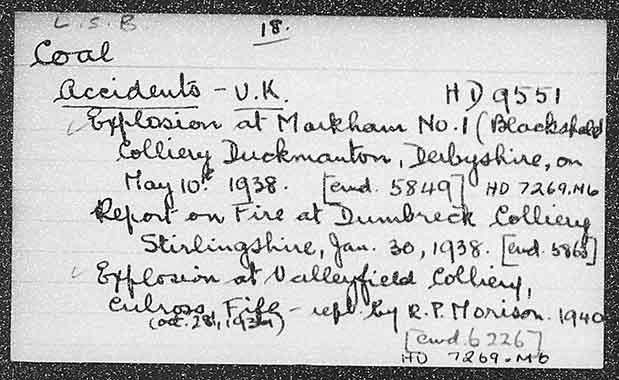 L.S.B. 18.
Coal
Accidents - U.K. HD 9551
Explosion at Markham No. 1 (Blackshale)
Colliery Duckmanton, Derbyshire, on
May 10th 1938. [cmd. 5849] HD 7269.M6
Report on Fire at Dumbreck Colliery
Stirlingshire, Jan. 30, 1938. [cmd. 5863]
Explosion at Valleyfield Colliery,
Culross, Fife - rept. by R.P. Morison. 1940
(Oct. 28th, 1939)
[cmd. 6226]
HD 7269.M6